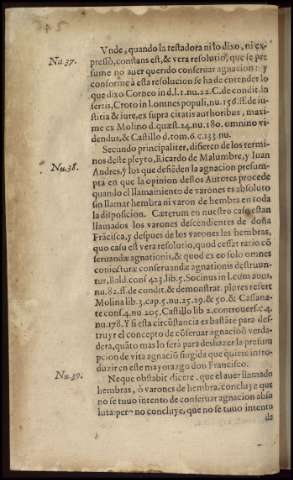 Nu.37.
Vnde, quando la testadora ni lo dixo, ni ex-
pressò, constans est, & vera resolutio, que se pre
sume no auer querido conseruar agnacion: y
conforme à esta resolucion se ha de entender lo
que dixo Corneo in d.l.1.nu.22.C.de condit. in
sertis, Croto in l.omnes populi, nu.156.ff.de iu-
stitia & iure, ex supra citatis authoribus, maxi-
me ex Molino d.quæst.24.nu.180. omnino vi
dendus, & Castillo d.tom.6.c.133.nu.
Nu.38.
Secundo principaliter, difieren de los termi-
nos deste pleyto, Ricardo de Malumbre, y Iuan
Andres, y los que defiẽden la agnacion presum-
pta en que la opinion destos Autores procede
quando el llamamiento de varones es absoluto
sin llamar hembra ni varon de hembra en toda
la disposicion. Cæterum en nuestro caso estan
llamados los varones descendientes de doña
Frãcisca, y despues de los varones las hembras,
quo casu est vera resolutio, quod cessat ratio cõ
seruandæ agnationis, & quod ex eo solo omnes
coniecturæ conseruandæ agnationis destruun-
tur, bald.cons.423.lib.5. Socinus in l.cum auus,
nu.82.ff.de condit.& demonstrat. plores refert
Molina lib.3.cap.5.nu.25.29.& 50. & Cassana-
te cons.4.nu.205. Castillo lib.2.controuers.c.4.
nu.178. Y si esta circũstancia es bastãte para des-
truyr el concepto de cõseruar agnaciõ verda-
dera, quãto mas lo serà para deshazer la presum
pcion de vna agnaciõ fingida que quiere intro-
duzir en este mayorazgo don Francisco.
Nu.39.
Neque obstabit dicere, que el auer llamado
hembras, ò varones de hembra, concluye que
no se tuuo intento de conseruar agnacion abso
luta: pero no concluye, que no se tuuo intento
da